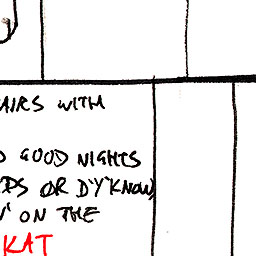 AIRS WITH
GOOD NIGHTS
OR D'Y'KNOW)
ON THE
KAT